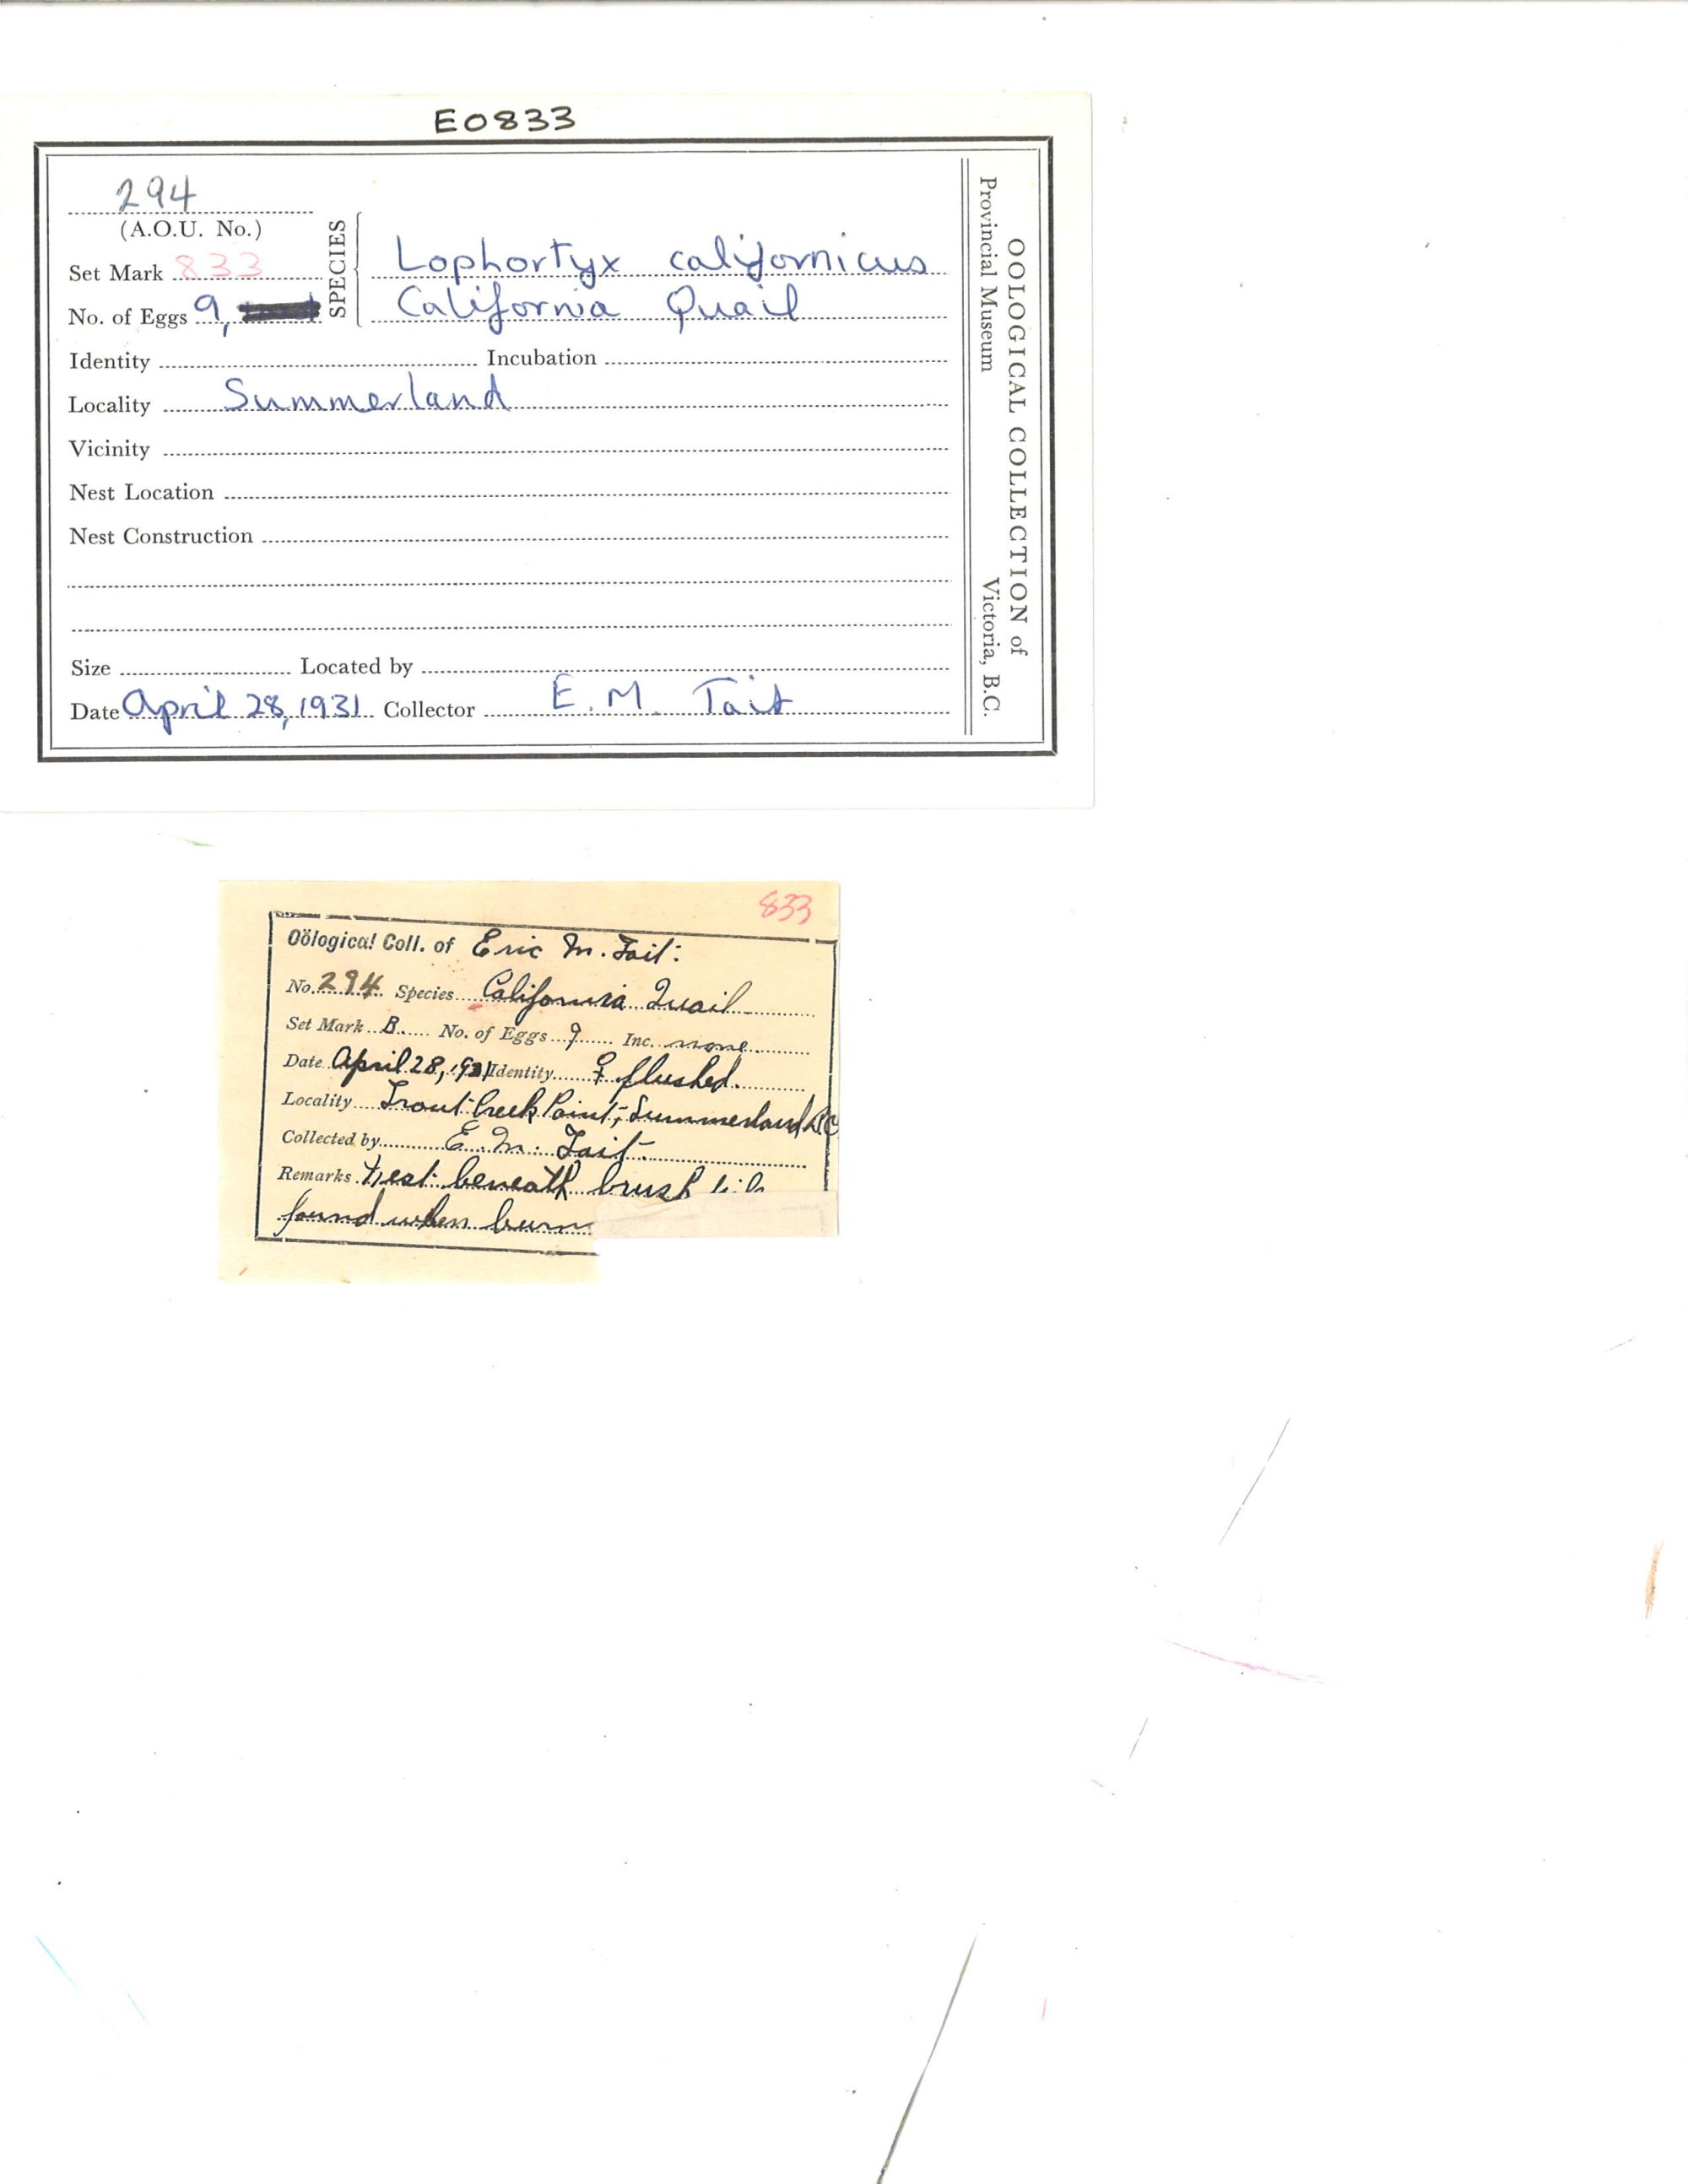 E0833
294
(A.O.U. No.)
Set Mark 833
No. of Eggs 9,
SPECIES
Lophortyx californicus
California Quail
Identity Incubation
Locality Summerland
Vicinity
Nest Location
Nest Construction
Size Located by
Date April 28, 1931 Collector E. M. Tait
OOLOGICAL COLLECTION of
Provincial Museum Victoria, B.C.
833
Oölogical Coll. of Eric M. Tait.
No. 294 Species California Quail
Set Mark B No. of Eggs 9 Inc. none
Date April 28, 1931 Identity ♀ flushed.
Locality Trout Creek Point, Summerland BC
Collected by E. M. Tait.
Remarks Nest beneath brush
found when